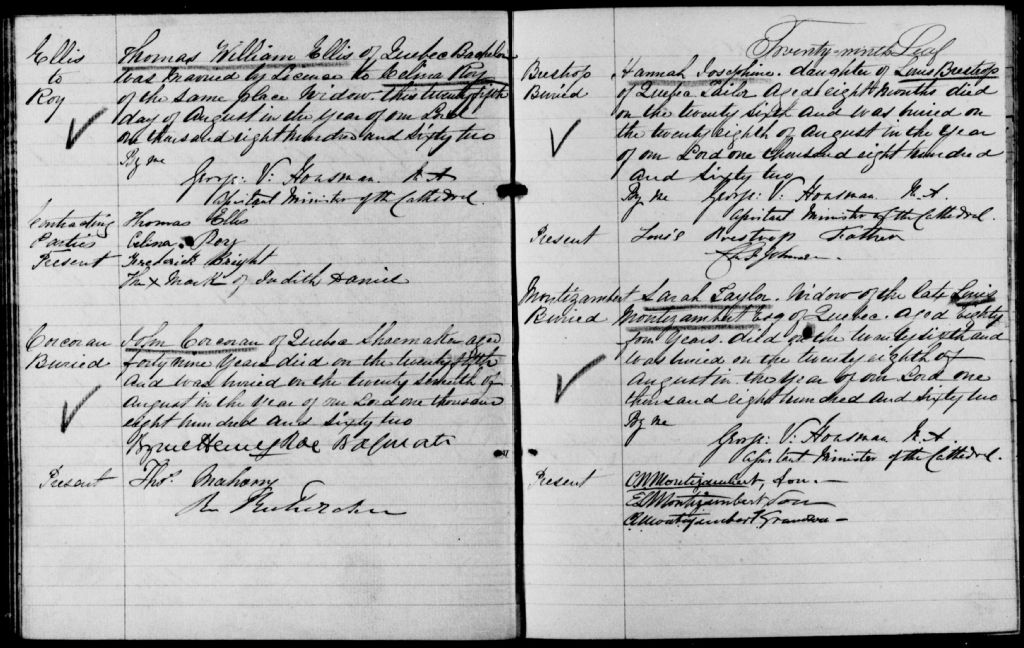 Ellis
to
Roy
Thomas William Ellis of Quebec Bachelor
was married by License to Celina Roy
of the same place Widow this twenty fifth
day of August in the year of our Lord
one thousand eight hundred and sixty two
By me
George: V: Housman M.A
Assistant Minister of the Cathedral
Contracting
Parties
Present
Thomas Ellis
Celina Roy
Frederick Bright
Her x Mark of Judith Daniel
Corcoran
Buried
John Corcoran of Quebec Shoemaker aged
forty nine Years died on the twenty fifth
and was buried on the twenty seventh of
August in the Year of our Lord one thousand
eight hundred and sixty two
By me Henry Roe
Present
Thos. Mahony
Twenty-ninth Leaf
Brestrop
Buried
Hannah Josephine. daughter of Louis Brestrop
of Quebec Tailor Aged eight Months died
on the twenty sixth and was buried on
the twenty eighth of August in the Year
of our Lord one thousand eight hundred
and Sixty two
By Me George: V: Housman M.A
Assistant Minister of the Cathedral.
Present
Louis Brestrop Father
Montizambert
Buried
Sarah Taylor. Widow of the late Louis
Montizambert Esq of Quebec. Aged Eighty
four Years. died on the twenty sixth and
was buried on the twenty eighth of
August in the Year of our Lord one
thousand eight hundred and sixty two
By Me
George: V: Housman M.A.
Assistant Minister of the Cathedral.
Present
C N Montizambert, Son.
E L Montizambert Son
Montizambert Grandson